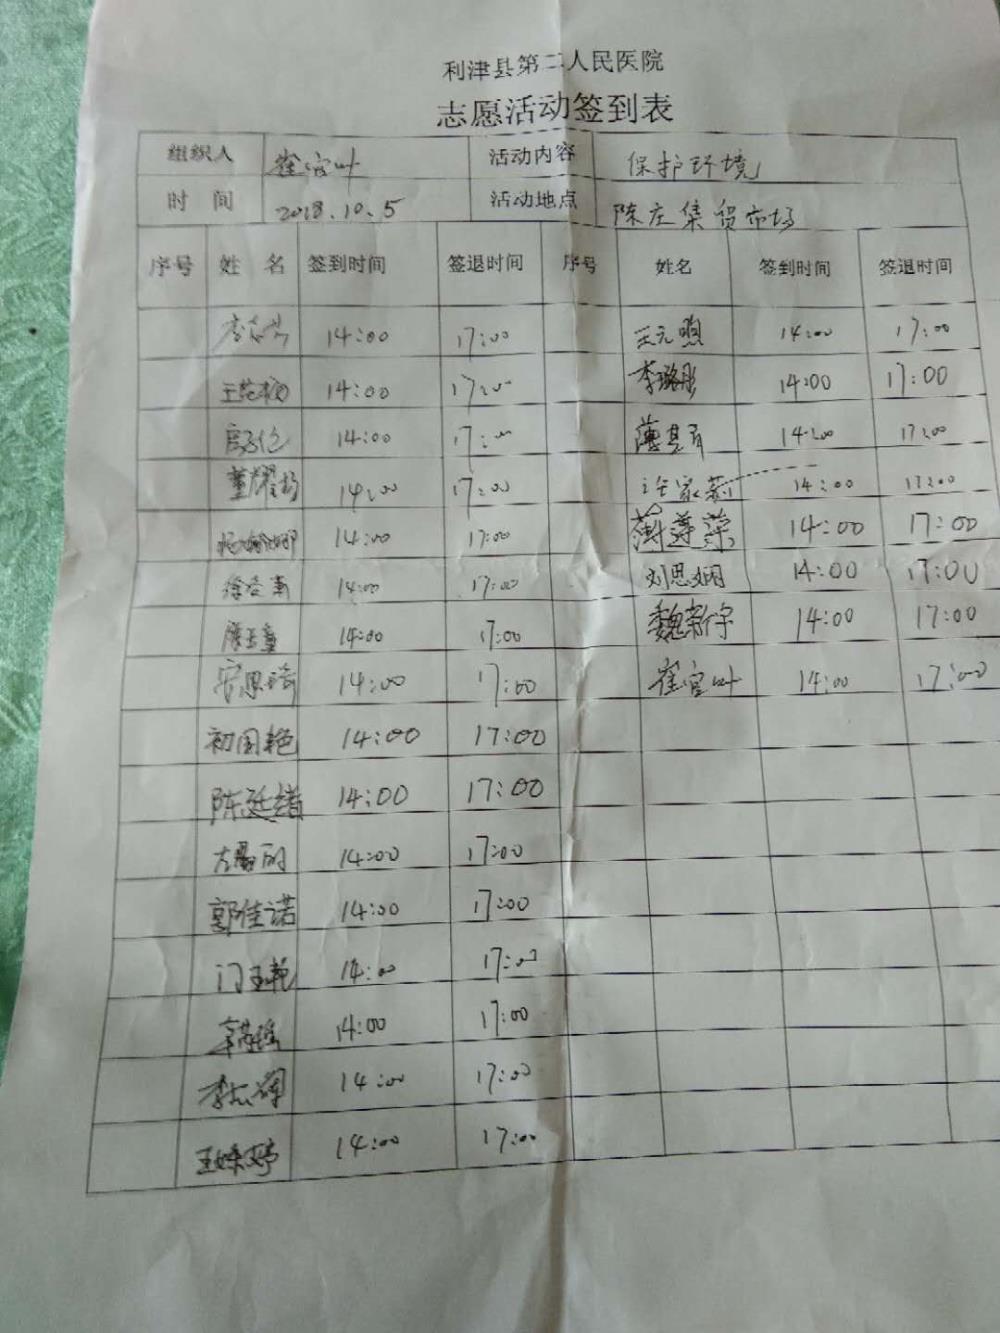 利津县第二人民医院
志愿活动签到表
组织人 崔官叶 活动内容 保护环境
时 间 2018.10.5 活动地点 陈庄集贸市场
序号 姓 名 签到时间 签退时间 序号 姓名 签到时间 签退时间
14:00 17:00 王元煦 14:00 17:00
14:00 17:00 李璐彤 14:00 17:00
14:00 17:00 薄其有 14:00 17:00
董耀扬 14:00 17:00 14:00 17:00
14:00 17:00 14:00 17:00
14:00 17:00 刘思娴 14:00 17:00
14:00 17:00 魏新宇 14:00 17:00
安思琦 14:00 17:00 崔官叶 14:00 17:00
初国艳 14:00 17:00
陈廷绪 14:00 17:00
14:00 17:00
郭佳诺 14:00 17:00
门玉艳 14:00 17:00
14:00 17:00
14:00 17:00
14:00 17:00